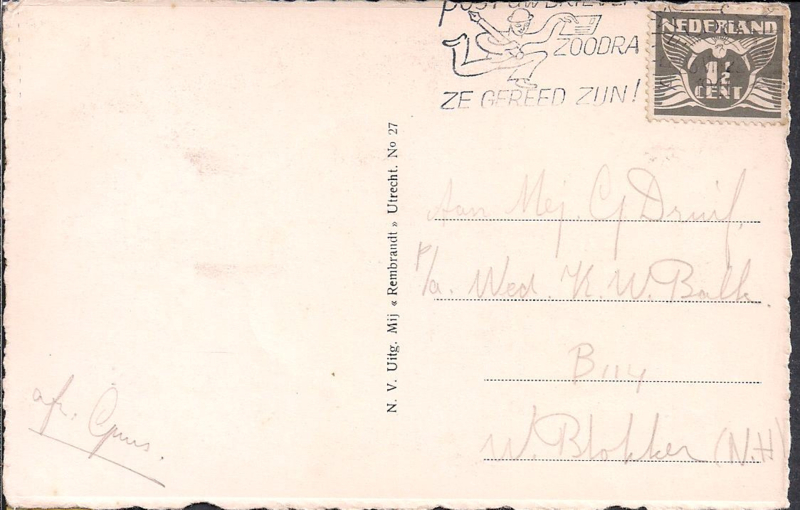 POST UW BRIEVEN
ZOODRA
ZE GEREED ZIJN!
NEDERLAND
1½
CENT
N. V. Uitg. Mij « Rembrandt » Utrecht. No 27
Aan Mej. G Druif,
p/a. Wed. K. W. Balk.
B 114
W. Blokker (N.H)
afz.